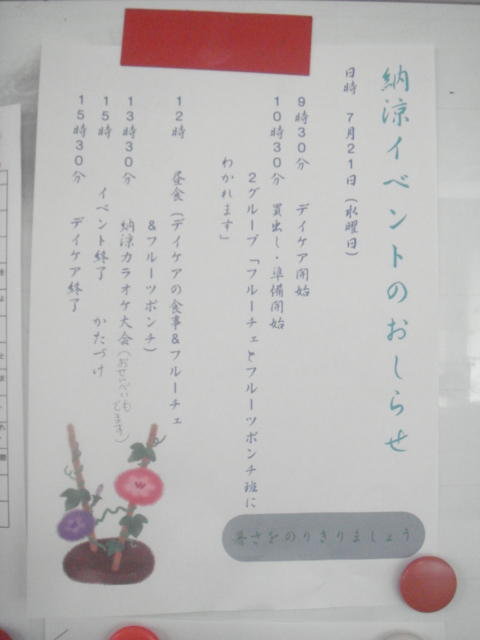 納涼イベントのおしらせ
日時 7月21日(水曜日)
9時30分 デイケア開始
10時30分 買出し・準備開始
2グループ「フルーチェとフルーツポンチ班に
わかれます」
12時 昼食(デイケアの食事&フルーチェ
&フルーツポンチ)
13時30分 納涼カラオケ大会(おせんべいも
でます)
15時 イベント終了 かたづけ
15時30分 デイケア終了
暑さをのりきりましょう